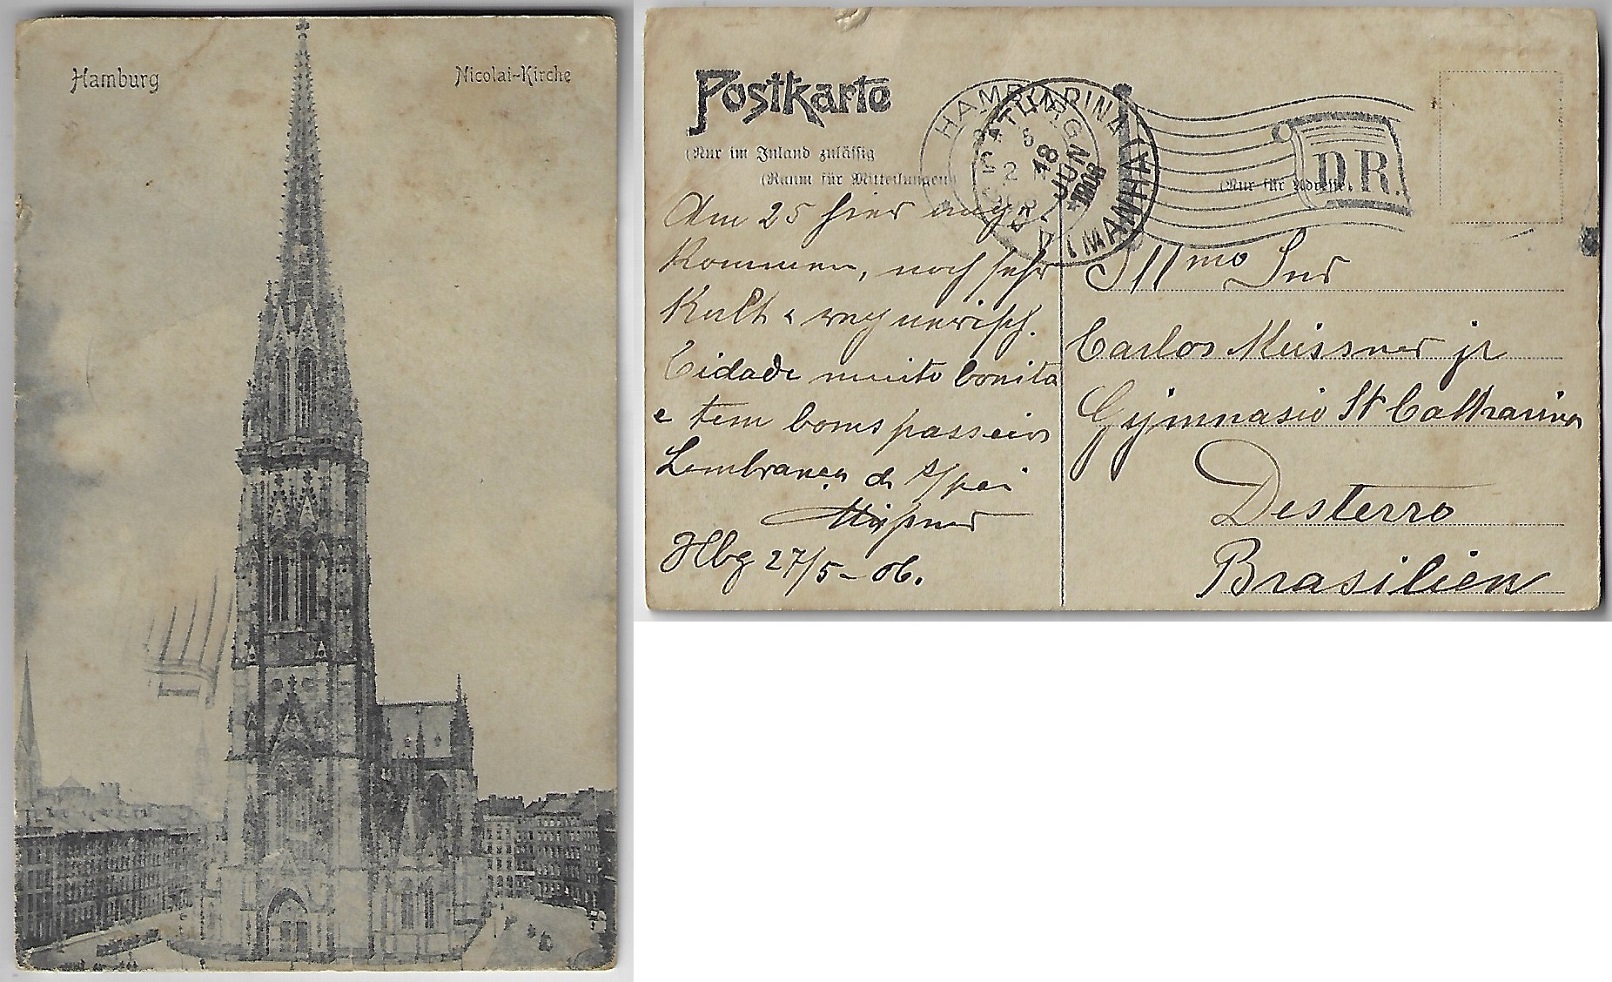 Hamburg
Nicolai-Kirche
Postkarte
(Nur im Inland zulässig
(Raum für Mitteilungen)
(Nur für Adresse)
HAMBURG
5
2
18
JUN
1906
D.R.
Am 25 hier ange
kommen, noch sehr
Kalt &
Cidade muito bonita
e tem bons passeios
Lembrança de s/pai
Meissner
Hbg 27/5-06.
Illmo Snr
Carlos Meissner jr
Gymnasio St Catharina
Desterro
Brasilien